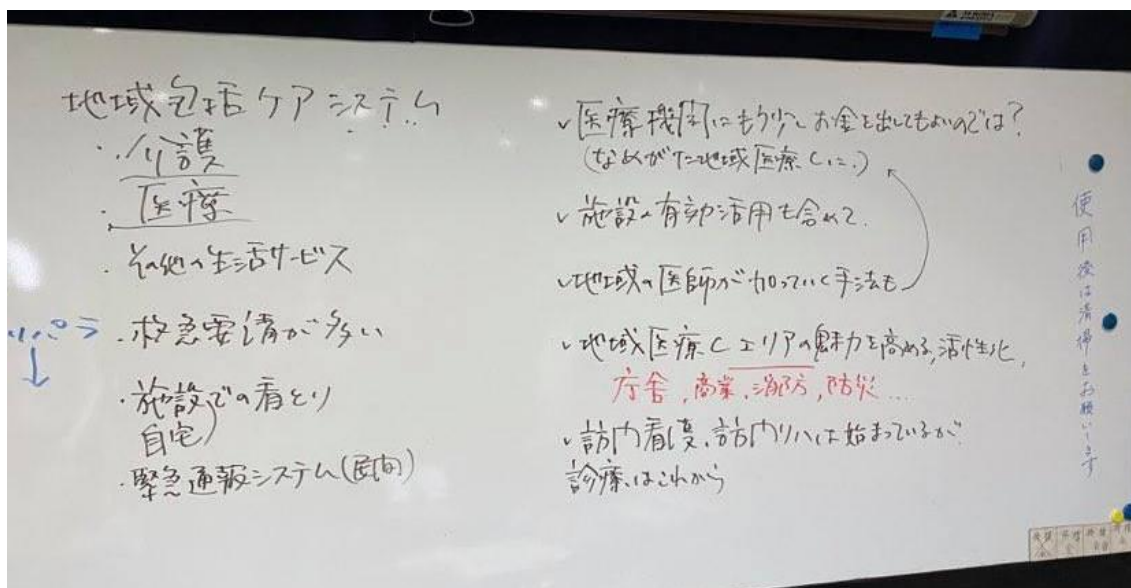 地域包括ケアシステム
・介護
・医療
・その他の生活サービス
・救急要請が多い
・施設での看とり
自宅
・緊急通報システム(民間)
✓医療機関にもう少しお金を出してもよいのでは?
(なめがた地域医療Cに)
✓施設の有効活用も含めて.
✓地域の医師が加っていく手法も
✓地域医療Cエリアの魅力を高める,活性化,
庁舎,商業,消防,防災....
✓訪門看護、訪門リハは始まっているが
診療はこれから
使用後は清掃をお願いします